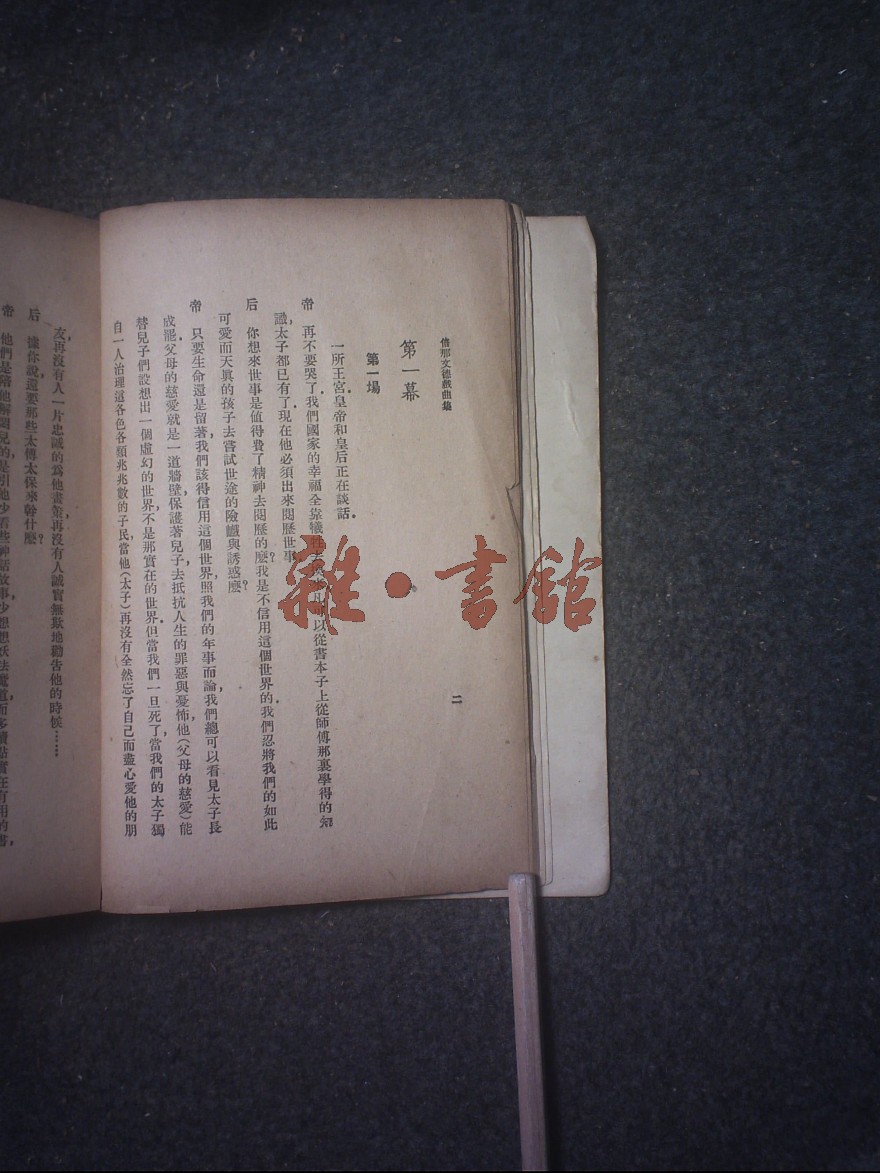 倍那文德戲曲集
二
第一幕
第一場
一所王宮皇帝和皇后正在談話.
帝　再不要哭了.我們國家的幸福全靠犧牲以從書本子上從師傅那裏學得的知
識,太子都已有了.現在他必須出來閱歷世事.
后　你想來世事是値得費了精神去閱歷的麽?我是不信用這個世界的.我們忍將我們的如此
可愛而天眞的孩子去嘗試世途的險巇與誘惑麽?
帝　只要生命還是留著,我們該得信用這個世界,照我們的年事而論,我們總可以看見太子長
成罷.父母的慈愛就是一道牆壁,保護著兒子,去抵抗人生的罪惡與憂怖,他(父母的慈愛)能
替兒子們設想出一個虛幻的世界,不是那實在的世界.但當我們一旦死了,當我們的太子獨
自一人治理這各色各類兆兆數的子民,當他(太子)再沒有全然忘了自己而盡心愛他的朋
友,再沒有人一片忠誠的爲他畫策再沒有人誠實無欺地勸告他的時候……
后　據你說還要那些太傅太保來幹什麽?
帝　他們是陪他解悶兒的是引他少看些神話故事少想想妖法魔道而多讀點實在有用的書,
雜·書館